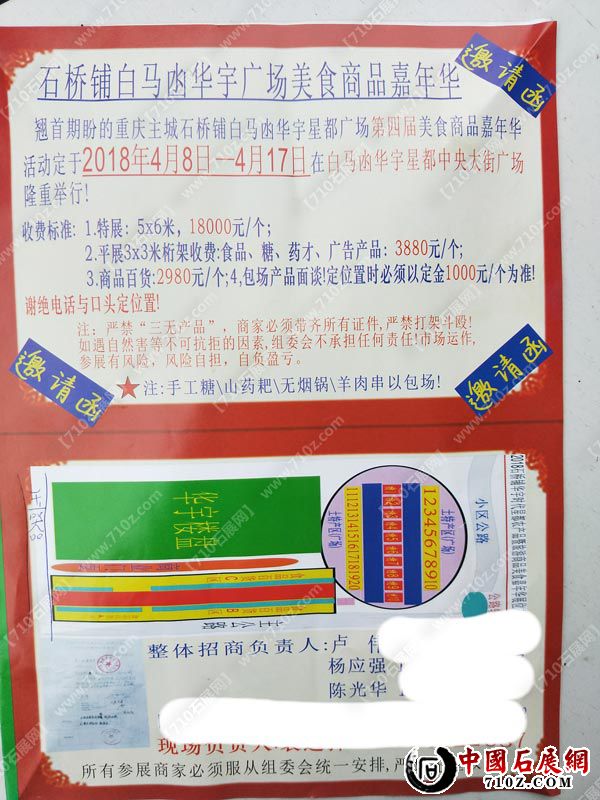 邀请函
石桥铺白马凼华宇广场美食商品嘉年华
翘首期盼的重庆主城石桥铺白马凼华宇星都广场第四届美食商品嘉年华
活动定于2018年4月8日—4月17日在白马凼华宇星都中央大街广场
隆重举行!
收费标准: 1.特展: 5x6米, 18000元/个;
2.平展3x3米桁架收费:食品、糖、药才、广告产品: 3880元/个;
3.商品百货:2980元/个;4,包场产品面谈!定位置时必须以定金1000元/个为准!
谢绝电话与口头定位置!
注: 严禁“三无产品”, 商家必须带齐所有证件,严禁打架斗殴!
如遇自然害等不可抗拒的因素,组委会不承担任何责任!市场运作,
参展有风险, 风险自担, 自负盈亏。
邀请函
邀请函
★注:手工糖\山药耙\无烟锅\羊肉串以包场!
华宇楼盘
土特产区(广场)
11121314151617181920
12345678910
土特产区(广场)
小区公路
主公路
整体招商负责人:卢 伟
杨应强
陈光华
现场负责人
所有参展商家必须服从组委会统一安排,严
中國石展網
710Z.COM